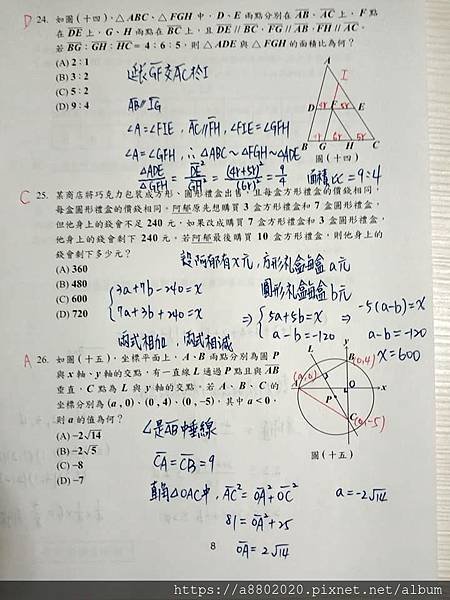 D 24. 如圖(十四),△ABC、△FGH 中,D、E 兩點分別在 AB、AC 上,F 點
在 DE 上,G、H 兩點在 BC 上,且 DE // BC,FG // AB,FH // AC。
若 BG:GH:HC = 4:6:5,則 △ADE 與 △FGH 的面積比為何?
(A) 2:1
(B) 3:2
(C) 5:2
(D) 9:4
延長GF交AC於I
AB // IG
∠A=∠FIE, AC // FH, ∠FIE=∠GFH
∠A=∠GFH, ∴△ABC~△FGH~△ADE
△ADE/△GFH = DE²/GH² = (4r+5r)²/(6r)² = 9/4
面積比=9:4
A
I
D 4r F 5r E
4r 6r 5r
B G H C
圖(十四)
C 25. 某商店將巧克力包裝成方形、圓形禮盒出售,且每盒方形禮盒的價錢相同,
每盒圓形禮盒的價錢相同。阿郁原先想購買 3 盒方形禮盒和 7 盒圓形禮盒,
但他身上的錢會不足 240 元,如果改成購買 7 盒方形禮盒和 3 盒圓形禮盒,
他身上的錢會剩下 240 元。若阿郁最後購買 10 盒方形禮盒,則他身上的
錢會剩下多少元?
(A) 360
(B) 480
(C) 600
(D) 720
設阿郁有x元,方形礼盒每盒a元
圓形礼盒每盒b元
3a+7b-240=x
7a+3b+240=x
兩式相加,兩式相減
⇒ 5a+5b=x
a-b=-120
⇒ -5(a-b)=x
a-b=-120
x=600
A 26. 如圖(十五),坐標平面上,A、B 兩點分別為圓 P
與 x 軸、y 軸的交點,有一直線 L 通過 P 點且與 AB
垂直,C 點為 L 與 y 軸的交點。若 A、B、C 的
坐標分別為 (a, 0)、(0, 4)、(0, -5),其中 a < 0,
則 a 的值為何?
(A) -2√14
(B) -2√5
(C) -8
(D) -7
L是AB中垂線
CA=CB=9
直角△OAC中, AC²=OA²+OC²
81=OA²+25
OA=2√14
a=-2√14
L y
B (0,4)
(a,0)
A O x
P
C (0,-5)
圖(十五)
8
https://a8802020.pixnet.net/album